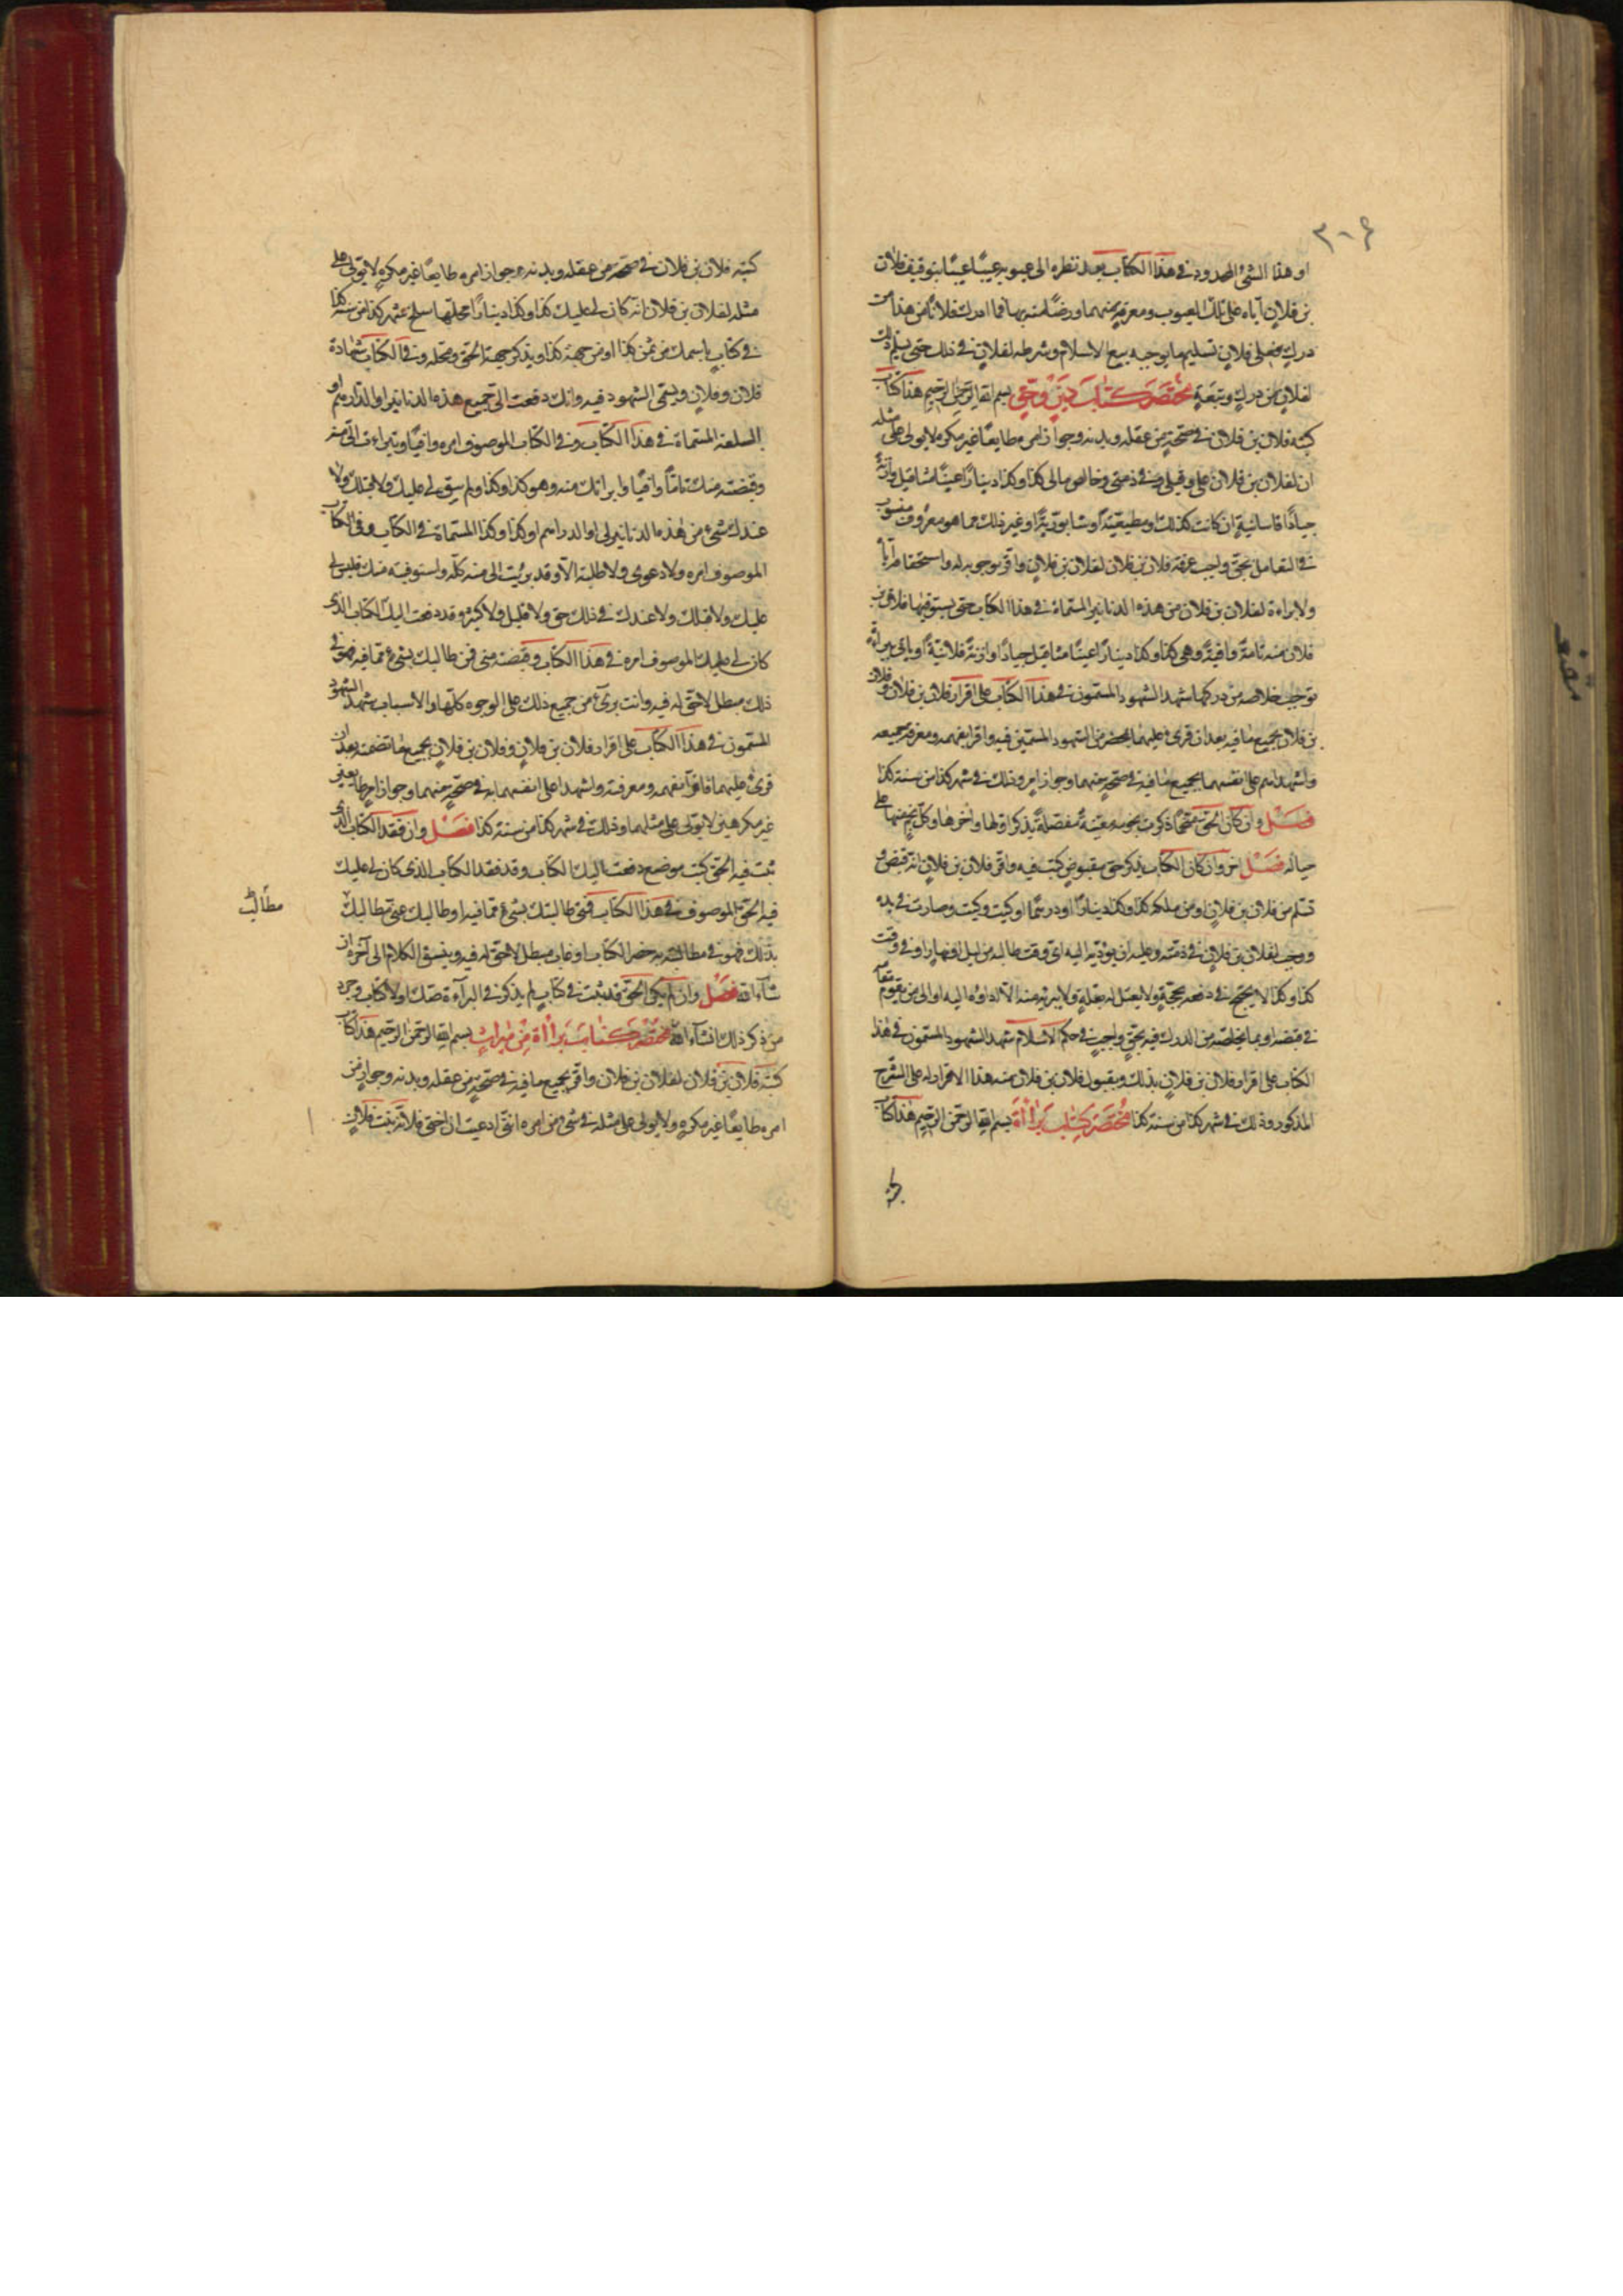 ٣٠۶
او هذا الشئ المحدود فى هذا الكتاب بعد نظره الى عيوبه عيبًا عيبًا بتوقيف فلان
بن فلان اياه على تلك العيوب ومعرفة منهما ورضًا منه بها فما ادرك فلانًا من هذا من
درك فعلى فلان تسليم ما يوجبه بيع الاسلام وشرطه لفلان فى ذلك حتى يسلم ذلك
لفلان من درك وتبعة مختصر كتاب دين وحق بسم الله الرحمن الرحيم هذا كتاب
كتبه فلان بن فلان فى صحة من عقله وبدنه وجواز امره طايعًا غير مكره لا يولى على مثله
ان لفلان بن فلان على وقبلى وفى ذمتى وخالص مالى كذا وكذا دينارًا عينًا مثاقيل وازنة
جيادًا قاسانية ان كانت كذلك او مطيعية او سابورية او غير ذلك مما هو معروف منسوب
فى التعامل بحق واجب عرفه فلان بن فلان لفلان بن فلان واقر بوجوبه له واستحقاقه اياه
ولا براءة لفلان بن فلان من هذه الدنانير المسماة فى هذا الكتاب حتى يستوفيها فلان بن
فلان منه تامة وافية وهى كذا وكذا دينارًا عينًا مثاقيل جيادًا وازنة فلانية او ياتى ببراءة
توجب خلاصه من دركها شهد الشهود المسمون فى هذا الكتاب على اقرار فلان بن فلان وفلان
بن فلان بجميع ما فيه بعد ان قرئ عليهما بمحضر من الشهود المسمين فيه واقرا بفهمه ومعرفة جميعه
واشهداهم على انفسهما بجميع ما فيه فى صحة منهما وجواز امر وذلك فى شهر كذا من سنة كذا
فصل وان كان الحق منجمًا ذكرت نجومه معينة مفصلة يذكر اولها واخرها وكل نجم منها على
حياله فصل اخر وان كان الكتاب بذكر حق مقبوض كتب فيه واقر فلان بن فلان انه قبض و
تسلم من فلان بن فلان ومن ملكه كذا وكذا دينارًا او درهمًا او كيت وكيت وصارت فى يده
ووجب لفلان بن فلان فى ذمته وعليه ان يؤديه اليه اى وقت طالبه من ليل او نهار او فى وقت
كذا وكذا لا يحتج فى دفعه بحجة ولا يعتل له بعلة ولا يبريه منه الا اداؤه اليه او الى من يقوم مقامه
فى قبضه او بما يخلصه من الدرك فيه بحق واجب فى حكم الاسلام شهد الشهود المسمون فى هذا
الكتاب على اقرار فلان بن فلان بذلك وبقبول فلان بن فلان منه هذا الاقرار له على الشرح
المذكور وذلك فى شهر كذا من سنة كذا مختصر كتاب براءة بسم الله الرحمن الرحيم هذا كتاب
كتبه فلان بن فلان فى صحة من عقله وبدنه وجواز امره طايعًا غير مكره لا يولى على
مثله لفلان بن فلان انه كان لى عليك كذا وكذا دينارًا محلها سلخ شهر كذا من سنة كذا
فى كتاب باسمك من ثمن كذا او من جهة كذا ويذكر جهة الحق ومحله وفى الكتاب شهادة
فلان وفلان ويسمى الشهود فيه وانك دفعت الى جميع هذه الدنانير او الدراهم او
السلعة المسماة فى هذا الكتاب وفى الكتاب الموصوف امره وافيًا وتبراءت الى منه
وقبضته منك تامًا وافيًا وابراتك منه وهو كذا وكذا ولم يبق لى عليك ولا قبلك ولا
عندك شئ من هذه الدنانير لى او الدراهم او كذا وكذا المسماة فى الكتاب وفى الكتاب
الموصوف امره ولا دعوى ولا طلبة الا وقد برئت الى منه كله واستوفيته منك فليس لى
عليك ولا قبلك ولا عندك فى ذلك حق ولا قليل ولا كثير وقد دفعت اليك الكتاب الذى
كان لى عليك الموصوف امره فى هذا الكتاب وقبضته منى فمن طالبك بشئ مما فيه فهو فى
ذلك مبطل لا حق له فيه وانت برئ من جميع ذلك على الوجوه كلها والاسباب شهد الشهود
المسمون فى هذا الكتاب على اقرار فلان بن فلان وفلان بن فلان بجميع ما تضمنه بعد ان
قرئ عليهما فاقرا بفهمه ومعرفته واشهدا على انفسهما به فى صحة منهما وجواز امر طايعين
غير مكرهين لا يولى على مثلهما وذلك فى شهر كذا من سنة كذا فصل وان فقد الكتاب الذى
ثبت فيه الحق كتب موضع دفعت اليك الكتاب وقد فقد الكتاب الذى كان لى عليك
فيه الحق الموصوف فى هذا الكتاب فمتى طالبتك بشئ مما فيه او طالبك عنى مطالب
مطالب
بذلك فهو فى مطالبته به حضر الكتاب او غاب مبطل لا حق له فيه وينسق الكلام الى آخره ان
شاء الله فصل وان لم يكن الحق قد ثبت فى كتاب لم يذكر فى البرآءة صك ولا كتاب وجرد
من ذكر ذلك انشاء الله مختصر كتاب براءة من ميراث بسم الله الرحمن الرحيم هذا كتاب
كتبه فلان بن فلان لفلان بن فلان واقر بجميع ما فيه فى صحة من عقله وبدنه وجواز من
امره طايعًا غير مكره ولا يولى على مثله فى شئ من امره اننى ادعيت ان اختى فلانة بنت فلان